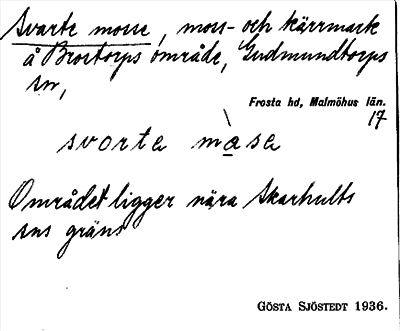 Svarte mosse, moss- och kärrmark
å Brostorps område, Gudmundtorps
sn,
Frosta hd, Malmöhus län.
17
svorta måsa
Området ligger nära Skarhults
sns gräns
GÖSTA SJÖSTEDT 1936.